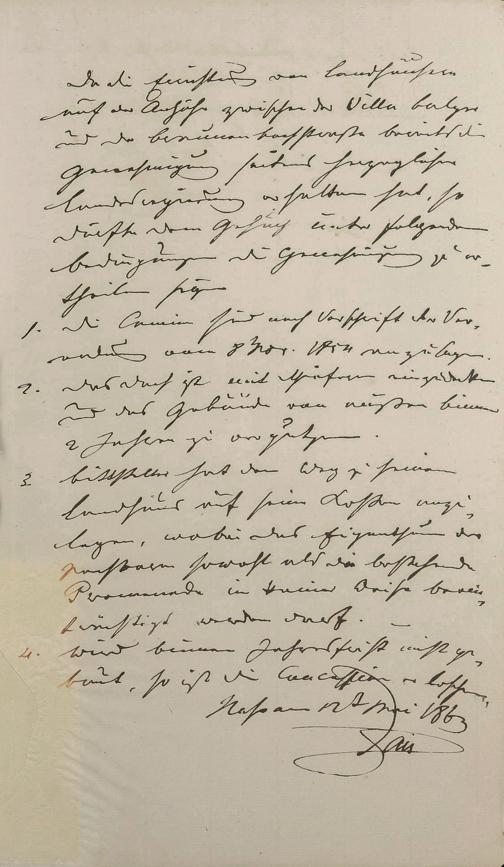 Da die Errichtung von Landhäusern
auf der Anhöhe zwischen der Villa Balzer
und der Brunnenbachstraße bereits die
Genehmigung seitens Herzoglicher
Landesregierung erhalten hat, so
dürfte dem Gesuch unter folgenden
Bedingungen die Genehmigung zu er-
theilen sein
1. die Camine sind nach Vorschrift der Ver-
ordnung vom 8 Nov. 1854 anzulegen.
2. das Dach ist mit Schiefern einzudecken
und das Gebäude von außen binnen
2 Jahren zu verputzen.
3 Bittsteller hat den Weg zu seinem
Landhaus auf seine Kosten anzu-
legen, wobei das Eigenthum der
Nachbarn sowohl als die bestehende
Promenade in keiner Weise beein-
trächtigt werden darf. –
4. wird binnen Jahresfrist nicht ge-
baut, so ist die Concession erloschen.
Nassau 12t Mai 1863